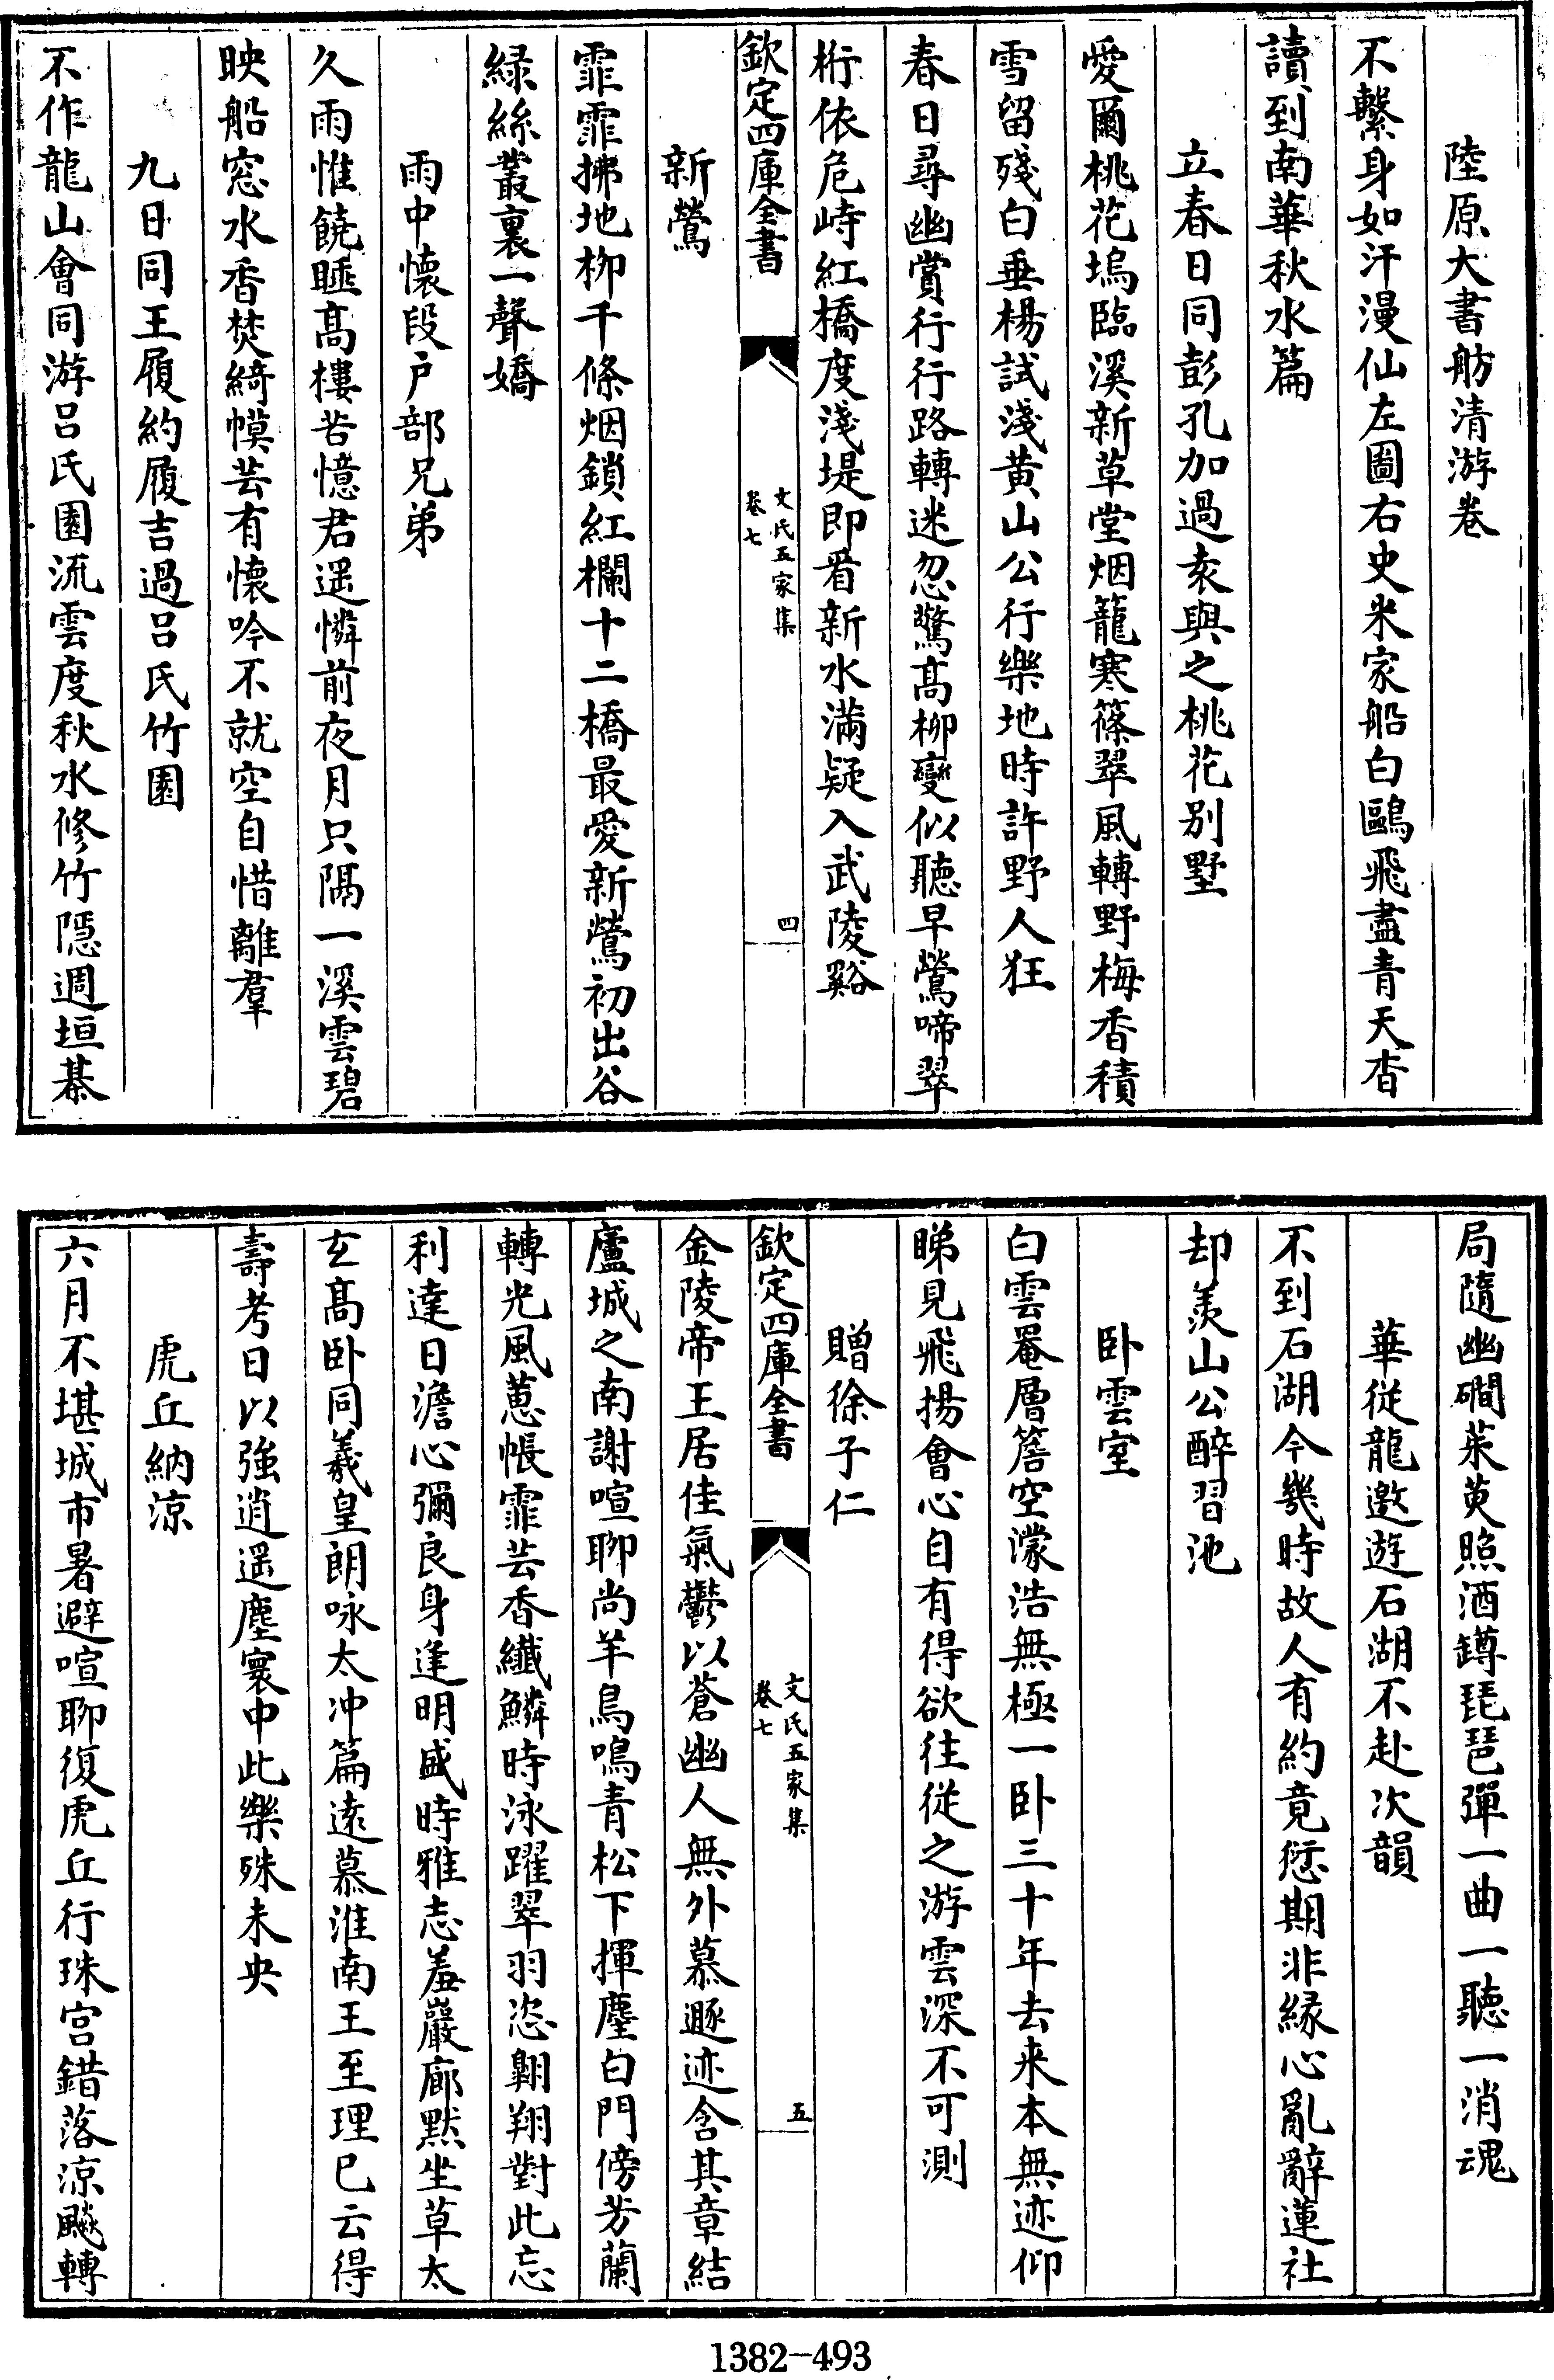 陸原大書舫清游卷
不繫身如汗漫仙左圖右史米家船白鷗飛盡青天杳
讀到南華秋水篇
立春日同彭孔加過袁與之桃花别墅
愛爾桃花塢臨溪新草堂烟籠寒篠翠風轉野梅香積
雪留殘白垂楊試淺黄山公行樂地時許野人狂
春日尋幽賞行行路轉迷忽驚髙柳變似聽早鶯啼翠
桁依危峙紅橋度淺堤即看新水滿疑入武陵谿
欽定四庫全書
文氏五家集
卷七
四
新鶯
霏霏拂地柳千條烟鎖紅欄十二橋最愛新鶯初出谷
緑絲叢裏一聲嬌
雨中懷段户部兄弟
久雨惟饒睡髙樓苦憶君遥憐前夜月只隔一溪雲碧
映船窓水香焚綺幙芸有懷吟不就空自惜離羣
九日同王履約履吉過吕氏竹園
不作龍山會同游吕氏園流雲度秋水修竹隱週垣棊
局隨幽磵茱萸照酒罇琵琶彈一曲一聽一消魂
華從龍邀遊石湖不赴次韻
不到石湖今幾時故人有約竟愆期非緣心亂辭蓮社
却羨山公醉習池
卧雲室
白雲罨層簷空濛浩無極一卧三十年去来本無迹仰
睇見飛揚會心自有得欲往從之游雲深不可測
贈徐子仁
欽定四庫全書
文氏五家集
卷七
五
金陵帝王居佳氣鬱以蒼幽人無外慕遯迹含其章結
廬城之南謝喧聊尚羊鳥鳴青松下揮麈白門傍芳蘭
轉光風蕙帳霏芸香纖鱗時泳躍翠羽恣翱翔對此忘
利達日澹心彌良身逢明盛時雅志羞巖廊黙坐草太
玄髙卧同羲皇朗咏太冲篇遠慕淮南王至理巳云得
壽考日以強逍遥塵寰中此樂殊未央
虎丘納涼
六月不堪城市暑避喧聊復虎丘行珠宫錯落涼飈轉
1382-493